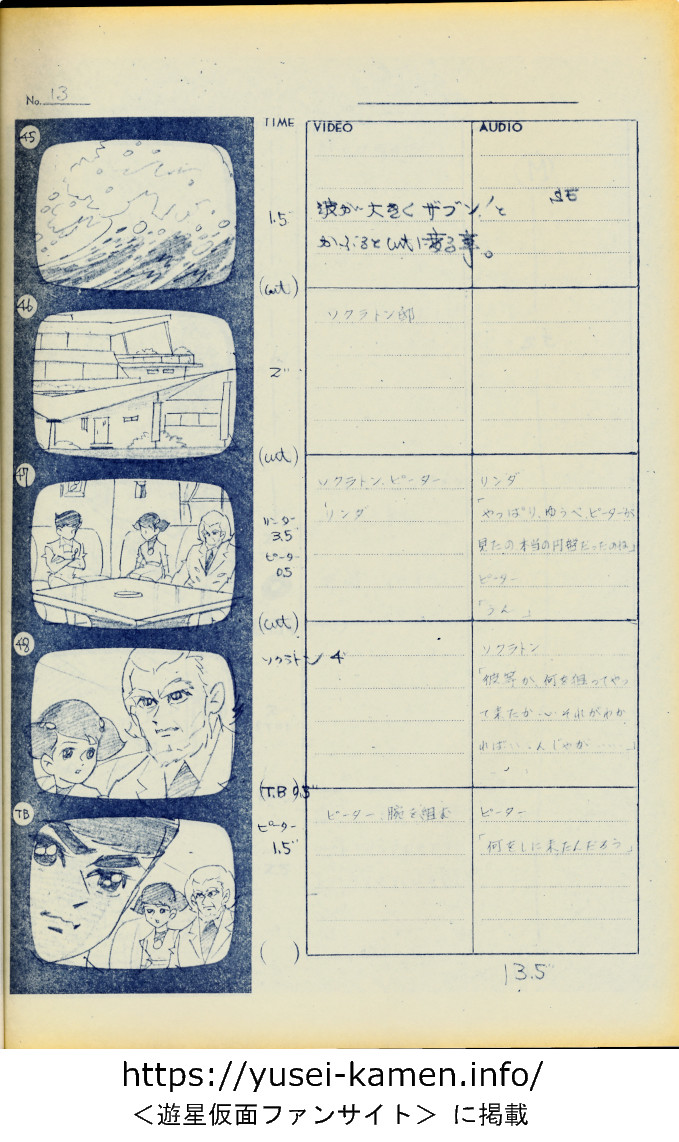 No. 13
TIME VIDEO AUDIO
45
1.5"
波が大きくザブン!と
かぶると cut に変る事。
(cut)
46
2"
ソクラトン邸
(cut)
47
リンダー
3.5
ピーター
0.5
ソクラトン、ピーター
リンダ
リンダ
「やっぱり、ゆうべ、ピーターが
見たの本当の円盤だったのね」
ピーター
「うん」
(cut)
48
ソクラトン 4"
ソクラトン
「彼等が、何を狙ってやっ
て来たか…それがわか
ればいいんじゃが……」
(T.B 0.5")
TB
ピーター
1.5"
ピーター、腕を組む
ピーター
「何をしに来たんだろう」
( )
13.5"
https://yusei-kamen.info/
＜遊星仮面ファンサイト＞ に掲載